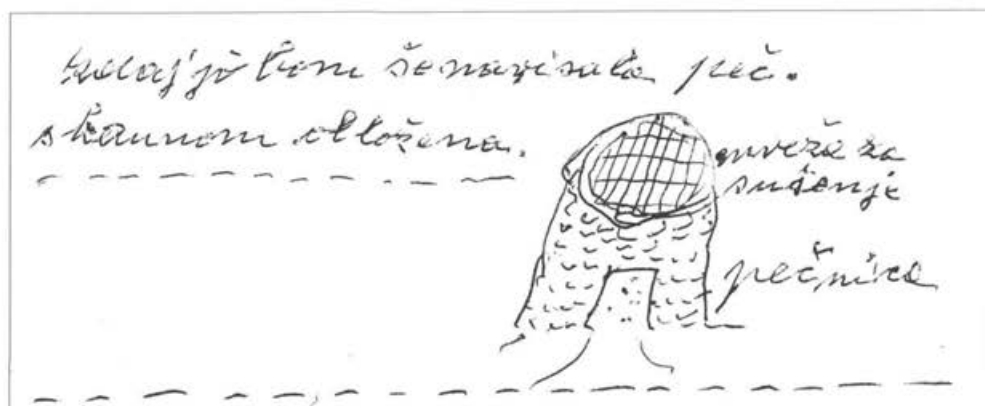 zdaj jo bom še narisala peč.
s kamnom obložena.
mreža za
sušenje
pečnica